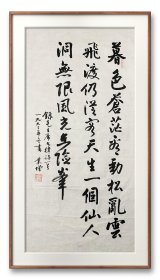 暮色蒼茫看勁松亂雲
飛渡仍從容天生一個仙人
洞無限風光在險峯
錄毛主席
一九